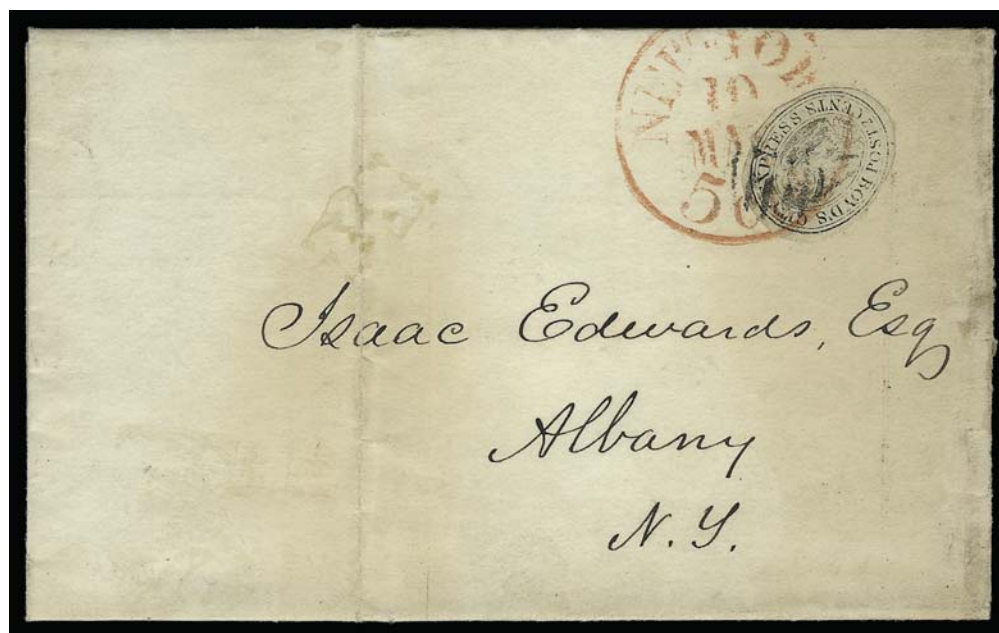 NEW-YO
10
MA
5
BOYD'S CITY EXPRESS POST 2 CENTS
Isaac Edwards, Esq
Albany
N.Y.